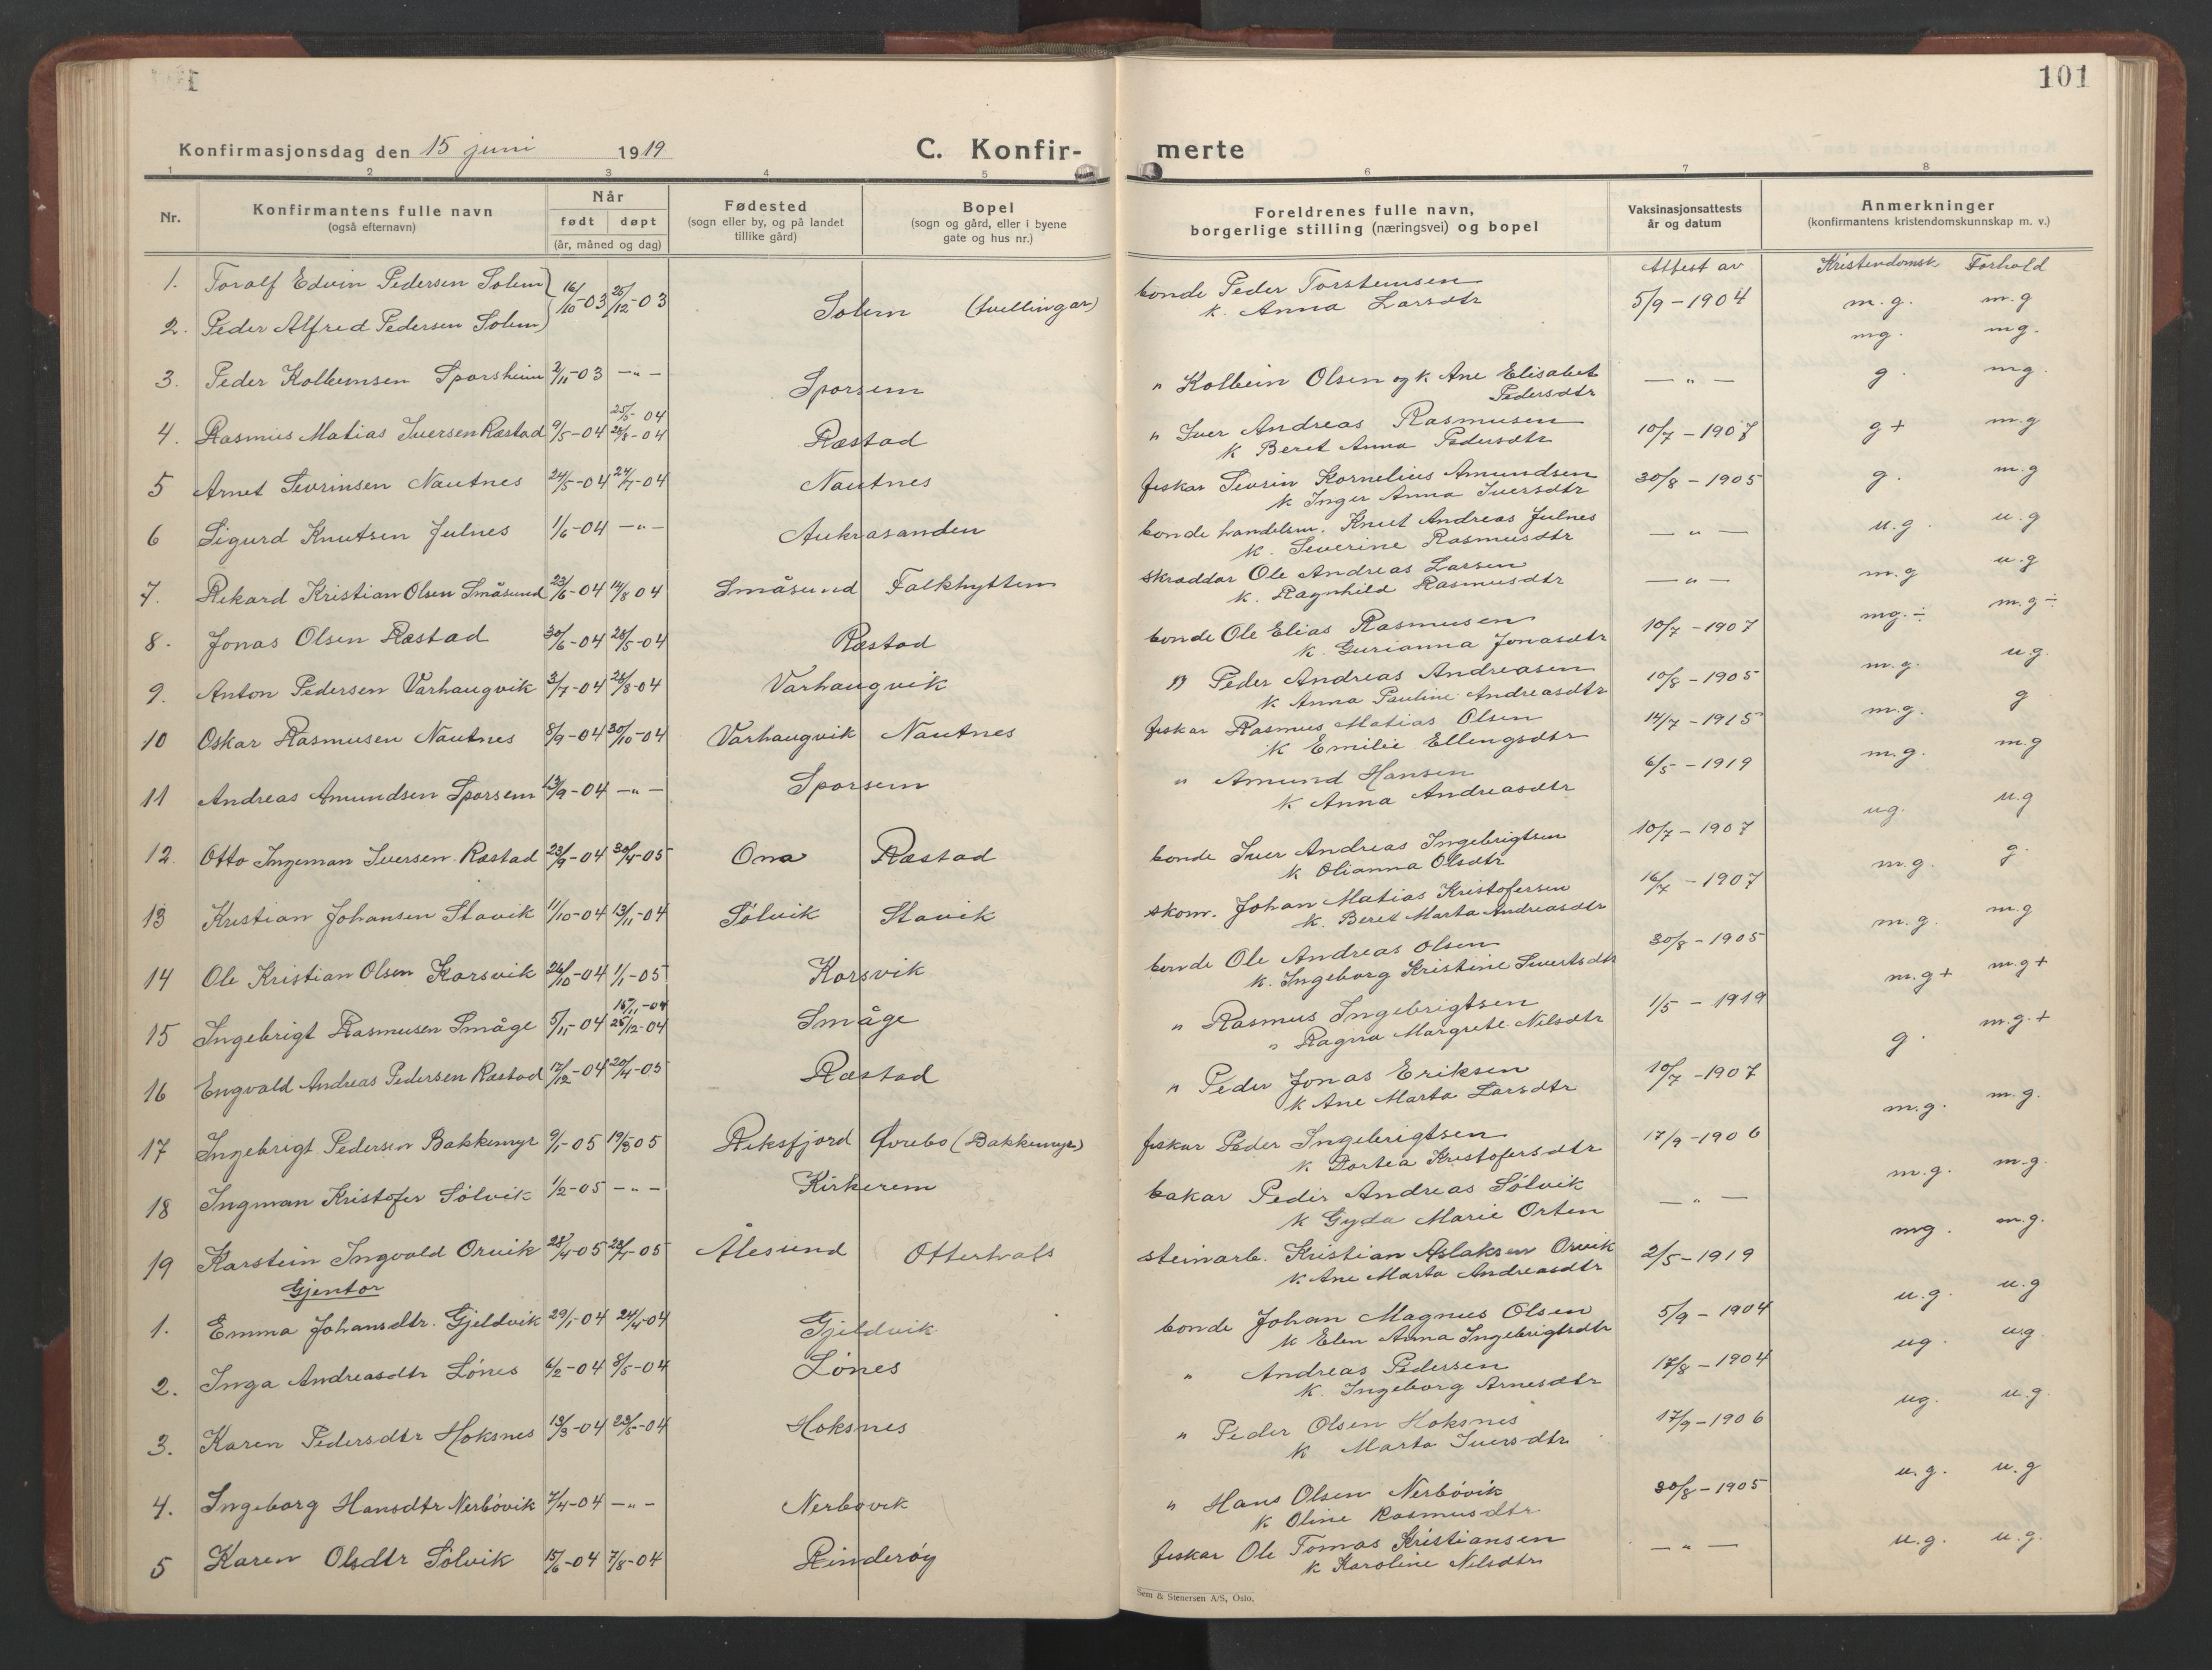 101
Konfirmasjonsdag den 15 juni 1919 C. Konfir- merte
1 2 3 4 5 6 7 8
Nr. Konfirmantens fulle navn (også efternavn) Når født døpt (år, måned og dag) Fødested (sogn eller by, og på landet tillike gård) Bopel (sogn og gård, eller i byene gate og hus nr.) Foreldrenes fulle navn, borgerlige stilling (næringsvei) og bopel Vaksinasjonsattests år og datum Anmerkninger (konfirmantens kristendomskunnskap m. v.)
Attest av Kristendomsk Forhold
1. Toralf Edvin Pedersen Solem 16/10-03 25/12-03 Solem (tvellingar) bonde Peder Torsteinsen 5/9-1904 m.g. m.g
k. Anna Larsdtr
2. Peder Alfred Pedersen Solem mg. mg.
3. Peder Kolbeinsen Sporsheim 2/11-03 —"— Sporsem " Kolbein Olsen og k. Ane Elisabet — " — g. mg.
Pedersdtr
4. Rasmus Matias Iversen Ræstad 9/5-04 25/5-04 28/8-04 Ræstad " Iver Andreas Rasmusen 10/7-1907 g+ m.g
k Beret Anna Pedersdtr
5 Arnet Sevrinsen Nautnes 24/5-04 24/7-04 Nautnes fiskar Sevrin Kornelius Amundsen 30/8-1905 g. m.g
k Inger Anna Iversdtr
6 Sigurd Knutsen Julnes 1/6-04 —"— Aukrasanden bonde handelsm. Knut Andreas Julnes — " — u.g. u.g
k. Severine Rasmusdtr
7. Rekard Kristian Olsen Småsund 23/6-04 14/8 04 Småsund Falkhytten skræddar Ole Andreas Larsen — " — m.g u.g
k. Ragnhild Rasmusdtr
8. Jonas Olsen Ræstad 30/6-04 28/5-04 Ræstad bonde Ole Elias Rasmusen 10/7-1907 mg.÷ m.g÷
k. Gurianna Jonasdtr
9. Anton Pedersen Varhaugvik 3/7-04 28/8-04 Varhaugvik " Peder Andreas Andreasen 10/8-1905 m.g. u.g.
k Anna Pauline Andreasdtr
10 Oskar Rasmusen Nautnes 8/9-04 30/10-04 Varhaugvik Nautnes fiskar Rasmus Matias Olsen 14/7-1915 m.g. g
k Emilie Ellengsdtr
11 Andreas Amundsen Sporsem 13/9-04 —"— Sporsem " Amund Hansen 6/5-1919 m.g. m.g
k Anna Andreasdtr
12. Otto Ingeman Iversen Ræstad 23/9-04 30/4-05 Ona Ræstad bonde Iver Andreas Ingebrigtsen 10/7-1907 ug. u.g
k Olianna Olsdtr
13 Kristian Johansen Stavik 11/10-04 13/11-04 Sølvik Stavik skom. Johan Matias Kristofersen 16/7-1907 m.g. g.
k. Beret Marta Andreasdtr
14 Ole Kristian Olsen Korsvik 26/10-04 1/1-05 Korsvik bonde Ole Andreas Olsen 30/8-1905 m.g. m.g
k. Ingeborg Kristine Sivertsdtr
15 Ingebrigt Rasmusen Småge 5/11-04 15/11-04 25/12-04 Småge " Rasmus Ingebrigtsen 1/5-1919 m.g+ m.g+
" Ragna Margrete Nilsdtr
16 Engvald Andreas Pedersen Ræstad 17/12-04 20/4-05 Ræstad " Peder Jonas Eriksen 10/7-1907 g. m.g.+
k Ane Marta Larsdtr
17 Ingebrigt Pedersen Bakkemyr 9/1-05 19/3 05 Reksfjord Øvrebø (Bakkemyr) fiskar Peder Ingebrigtsen 17/9-1906 m.g. m.g.
k Dortea Kristofersdtr
18 Ingman Kristofer Sølvik 1/2-05 —"— Kirkerem bakar Peder Andreas Sølvik — " — m.g. m.g.
k Gyda Marie Orten
19 Karstein Ingvald Orvik 28/4-05 23/7-05 Ålesund Otterhals steinarb. Kristian Aslaksen Orvik 2/5-1919 mg. m.g.
k Ane Marta Andreasdtr
Gjentor
1. Emma Johansdtr. Gjeldvik 29/1-04 24/4-04 Gjeldvik bonde Johan Magnus Olsen 5/9-1904 u.g. u.g
k Elen Anna Ingebrigtsdtr
2. Inga Andreasdtr Lönes 6/2-04 8/5-04 Lönes " Andreas Pedersen 17/8-1904 ug. ug.
k. Ingeborg Arnesdtr
3. Karen Pedersdtr Hoksnes 13/3-04 23/5-04 Hoksnes " Peder Olsen Hoksnes 17/9-1906 ug. u.g.
k Marta Iversdtr
4. Ingeborg Hansdtr Nerbövik 7/4-04 —"— Nerbövik " Hans Olsen Nerbövik 30/8-1905 u.g. u.g
k Oline Rasmusdtr
5 Karen Olsdtr Sølvik 15/6-04 7/8-04 Rinderöy fiskar Ole Tomas Kristiansen — " — u.g. u.g.
k Karoline Nilsdtr
Sem & Stenersen A/S, Oslo.